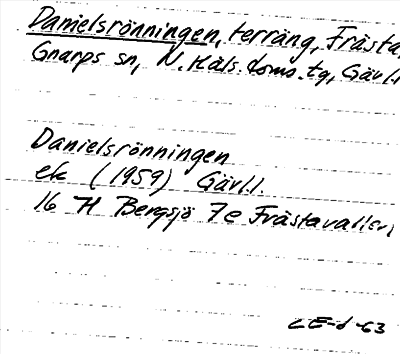 Danielsrönningen, terräng, Frästa,
Gnarps sn, N. Häls. doms. tg, Gävl.l
Danielsrönningen
ek (1959) Gävl.l.
16 H Bergsjö 7e Frästavallen
LE-d -63